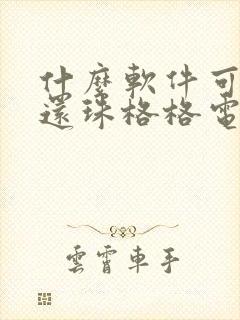 什麼軟件可
還珠格格電
雲霄車手